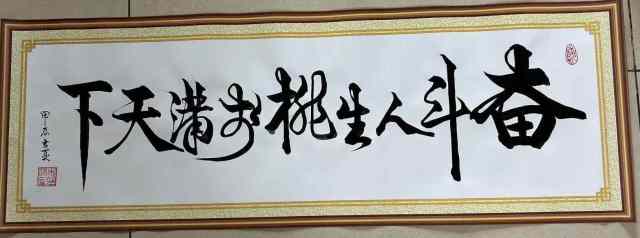 奋斗人生桃李满天下
甲辰立夏